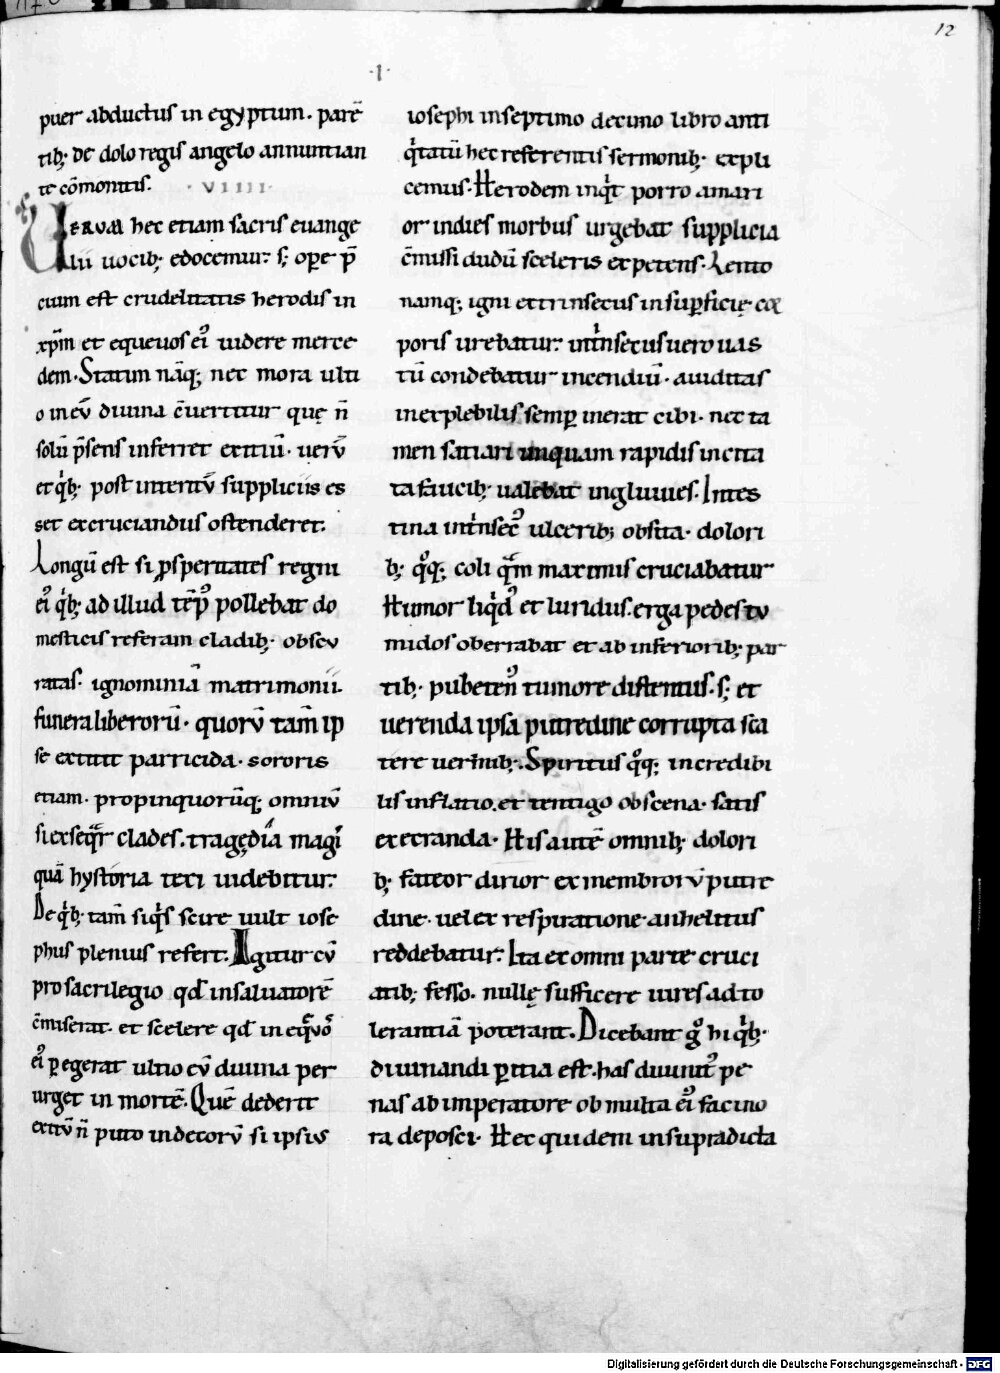 12
·I·
puer abductus in egyptum. parē
tib; de dolo regis angelo annuntian
te cōmonitis. · VIIII ·
Uerum hec etiam sacris euange
lii uocib; edocemur: s; ope p̄
cium est crudelitatis herodis in
xp̄m et equeuos ei᾿ uidere merce
dem. Statim nāq; nec mora ulti
o in eū diuina c̄uertitur quę n̄
solū p̄sens inferret exitiū. uerū
et qͥb; post interitū suppliciis es
set excruciandus ostenderet.
Longū est si psperitates regni
ei᾿ qͥb; ad illud tēp᾿ pollebat do
mesticis referam cladib; obscu
ratas. ignominiā matrimonii.
funera liberorū. quorū tam̄ ip
se extitit parricida. sororis
etiam. propinquorūq; omniū
si exseqͣr clades. tragędiā magͥ
quā hystoria texi uidebitur:
De qͥb; tam̄ siqͥs scire uult iose
phus plenius refert. Igitur cū
pro sacrilegio qd̄ in saluatorē
c̄miserat. et scelere qd̄ in eq̄uo᾿
ei᾿ pegerat ultio cū diuina per
urget in mortē. Quē dederit
exitū n̄ puto indecorū si ipsius
iosephi in septimo decimo libro anti
qͥtatū hec referentis sermonib; expli
cemus. Herodem inqͥt porro amari
or indies morbus urgebat supplicia
c̄missi dudū sceleris expetens. Lento
namq; igni extrinsecus in supficię cor
poris urebatur: intͥnsecus uero uas
tū condebatur incendiū. auiditas
inexplebilis semp inerat cibi. nec ta
men satiari unquam rapidis incita
ta faucib; ualebat ingluuies. Intes
tina intͥnsec᾿ ulcerib; obsita. dolori
b; qͦq; coli qͣm maximis cruciabatur
Humor liqͥd᾿ et luridus. erga pedes tu
midos oberrabat et ab inferiorib; par
tib; pubeten᾿ tumore distentus. s; et
uerenda ipsa putredine corrupta sca
tere uermib;. Spiritus qͦq; incredibi
lis inflatio. et tentigo obscena. satis
execranda. His autē omnib; dolori
b; fateor dirior ex membrorū putre
dine. uel ex respiratione anhelitus
reddebatur: Ita ex omni parte cruci
atib; fesso. nullę sufficere uires ad to
lerantiā poterant. Dicebant gͦ hi qͥb;
diuinandi pitia est. has diuinit᾿ pe
nas ab imperatore ob multa ei᾿ facino
ra deposci. Hec quidem in supradicta
Digitalisierung gefördert durch die Deutsche Forschungsgemeinschaft - DFG